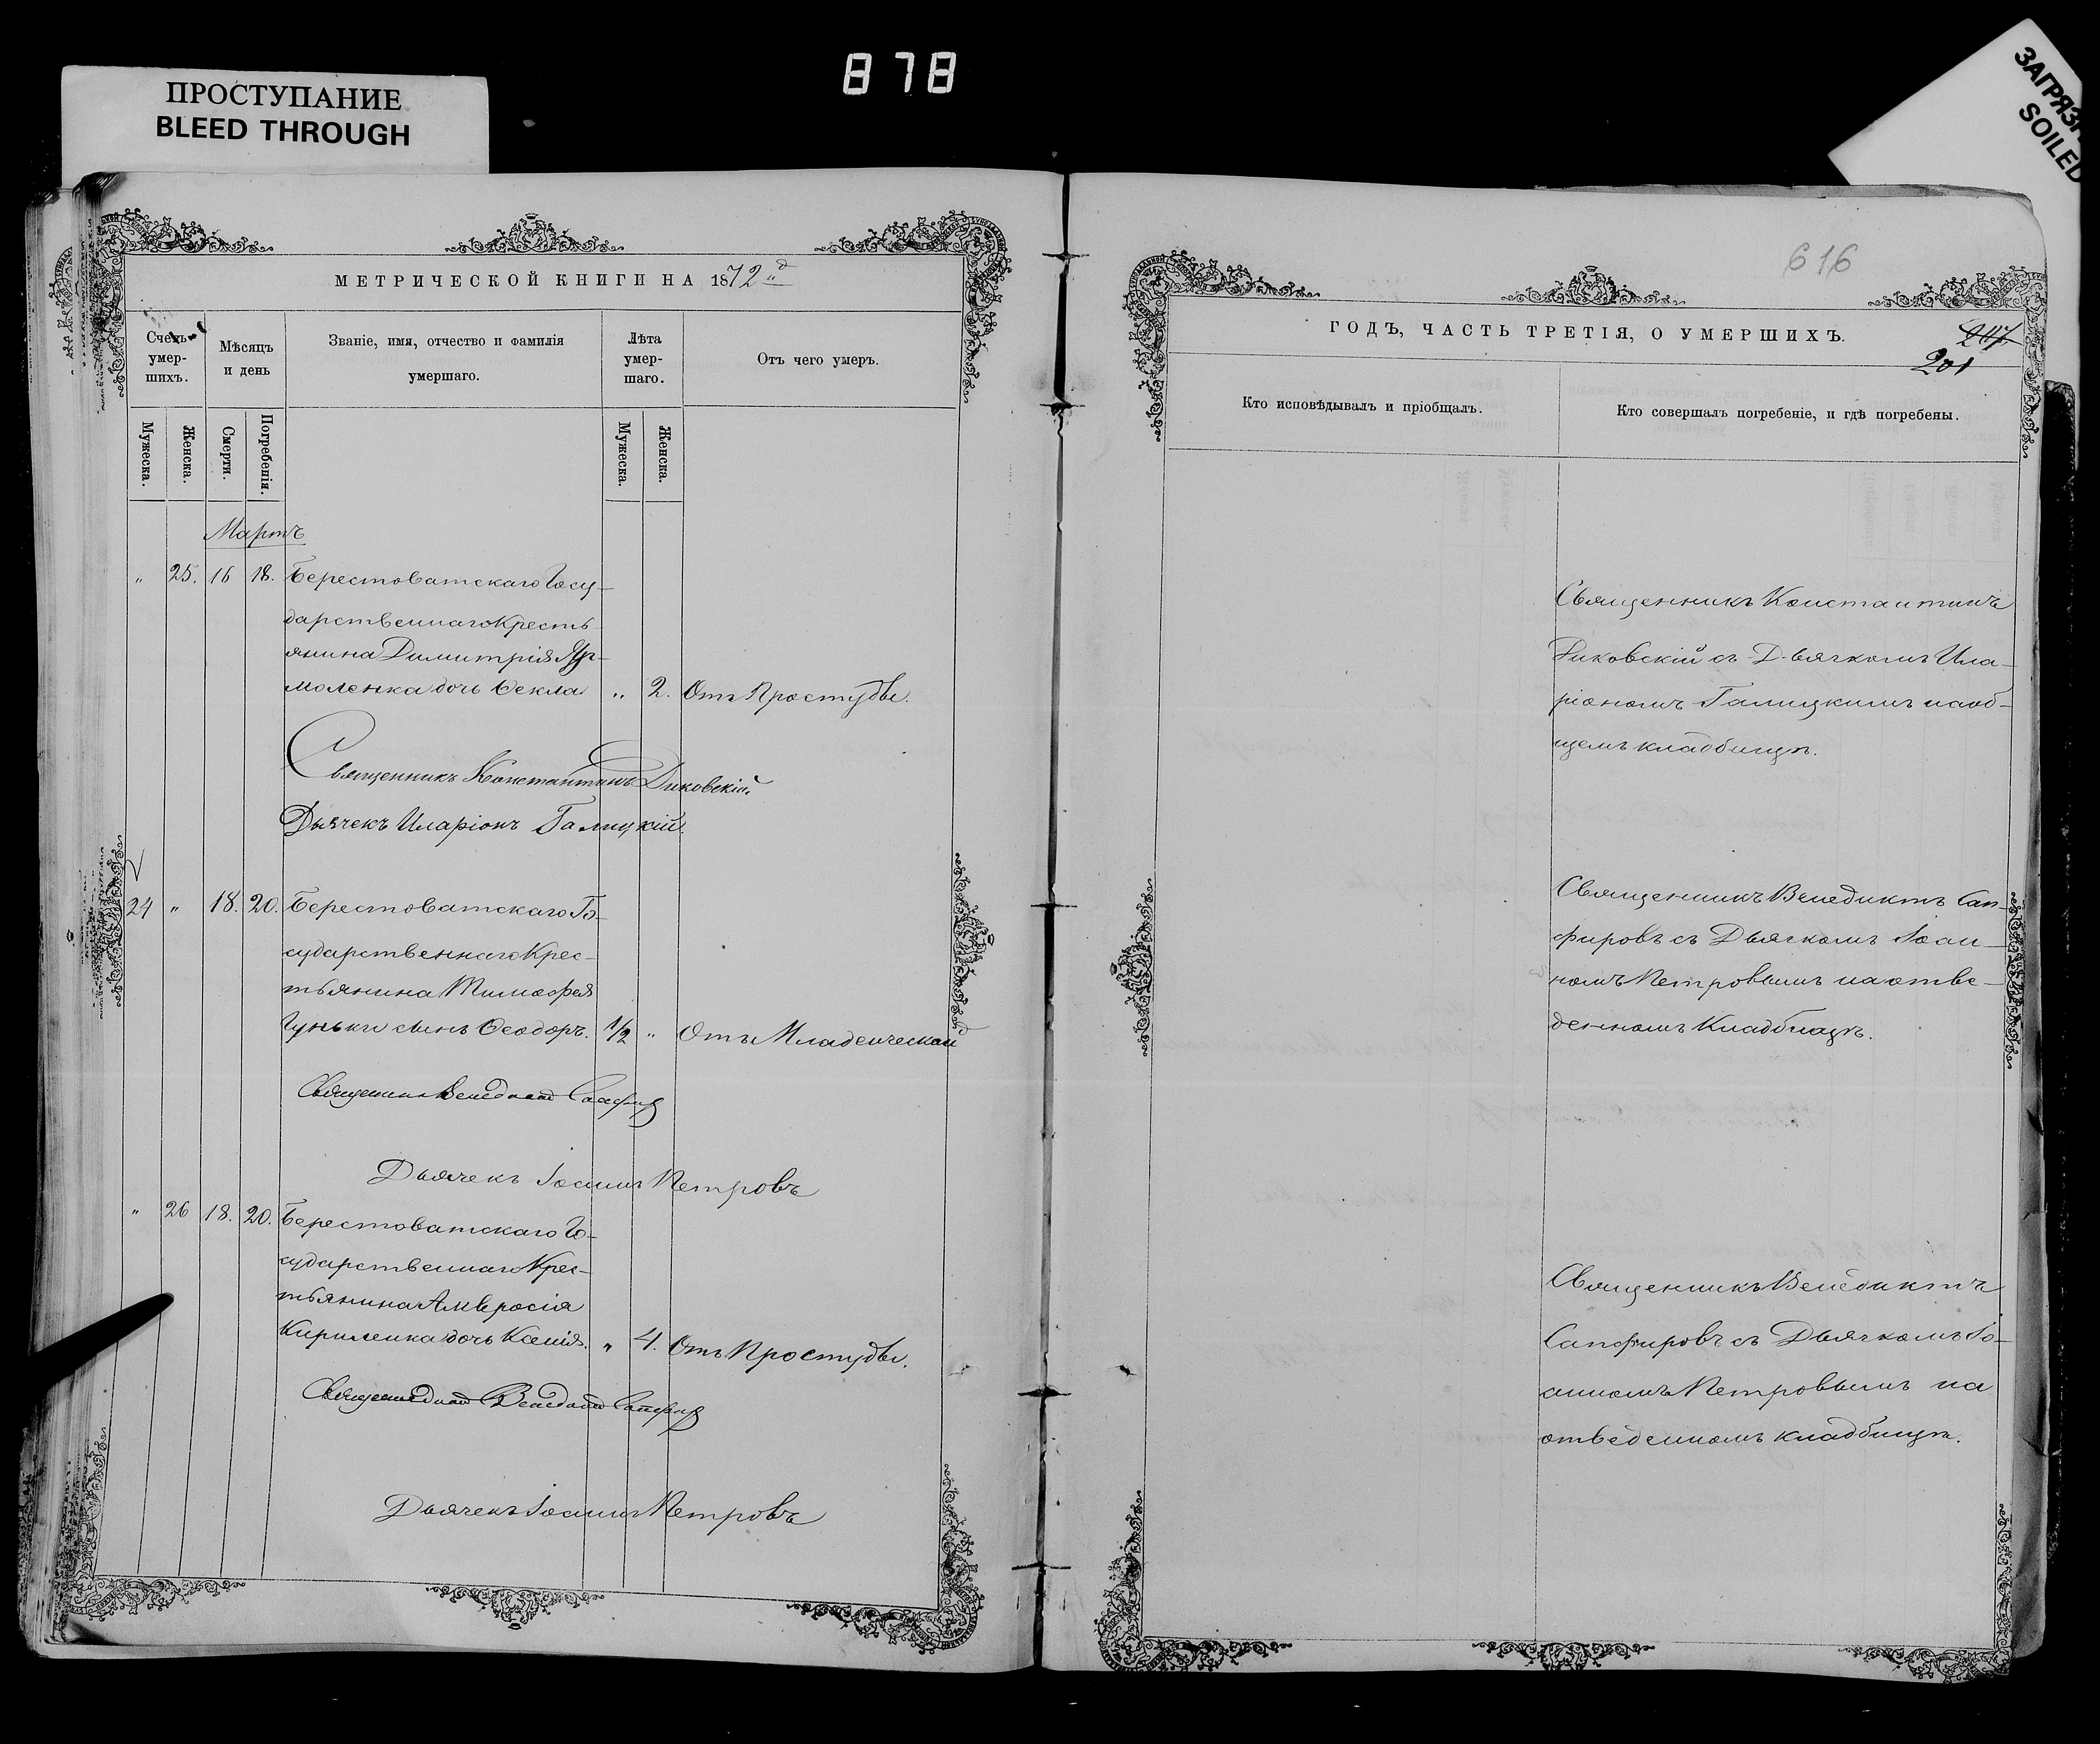 878
ПРОСТУПАНИЕ
BLEED THROUGH
ЗАГРЯЗН
SOILED
МЕТРИЧЕСКОЙ КНИГИ НА 1872й
Счетъ умер-шихъ.
Мѣсяцъ и день
Званіе, имя, отчество и фамилія умершаго.
Лѣта умер-шаго.
Отъ чего умеръ.
Мужеска.
Женска.
Смерти.
Погребенія.
Мужеска.
Женска.
Мартъ
" 25. 16 18. Берестоватскаго Госу-
дарственнаго Кресть-
янина Димитрія Яр-
моленка дочь Ѳекла " 2. Отъ Простуды.
Священникъ Константинъ Диковскій
Дьячекъ Иларіонъ Галицкій.
24 " 18. 20. Берестоватскаго Го-
сударственнаго Крес-
тьянина Тимофея
Гуньки сынъ Ѳеодоръ. 1/2 " Отъ Младенческой
Священникъ Венедиктъ Сапфировъ
Дьячекъ Іоаннъ Петровъ
" 26 18. 20. Берестоватскаго Го-
сударственнаго Крес-
тьянина Амвросія
Кириленка дочь Ксенія. " 4. Отъ Простуды.
Венедиктъ Сапфировъ
Дьячекъ Іоаннъ Петровъ
616
ГОДЪ, ЧАСТЬ ТРЕТІЯ, О УМЕРШИХЪ.
201
Кто исповѣдывалъ и пріобщалъ.
Кто совершалъ погребеніе, и гдѣ погребены.
Священникъ Константинъ
Диковскій съ Дьячкомъ Ила-
ріономъ Галицкимъ на об-
щемъ кладбищѣ.
Священникъ Венедиктъ Сап-
фировъ съ Дьячкомъ Іоан-
номъ Петровымъ на отве-
денномъ Кладбищѣ.
Священникъ Венедиктъ
Сапфировъ съ Дьячкомъ Іо-
анномъ Петровымъ на
отведенномъ кладбищѣ.